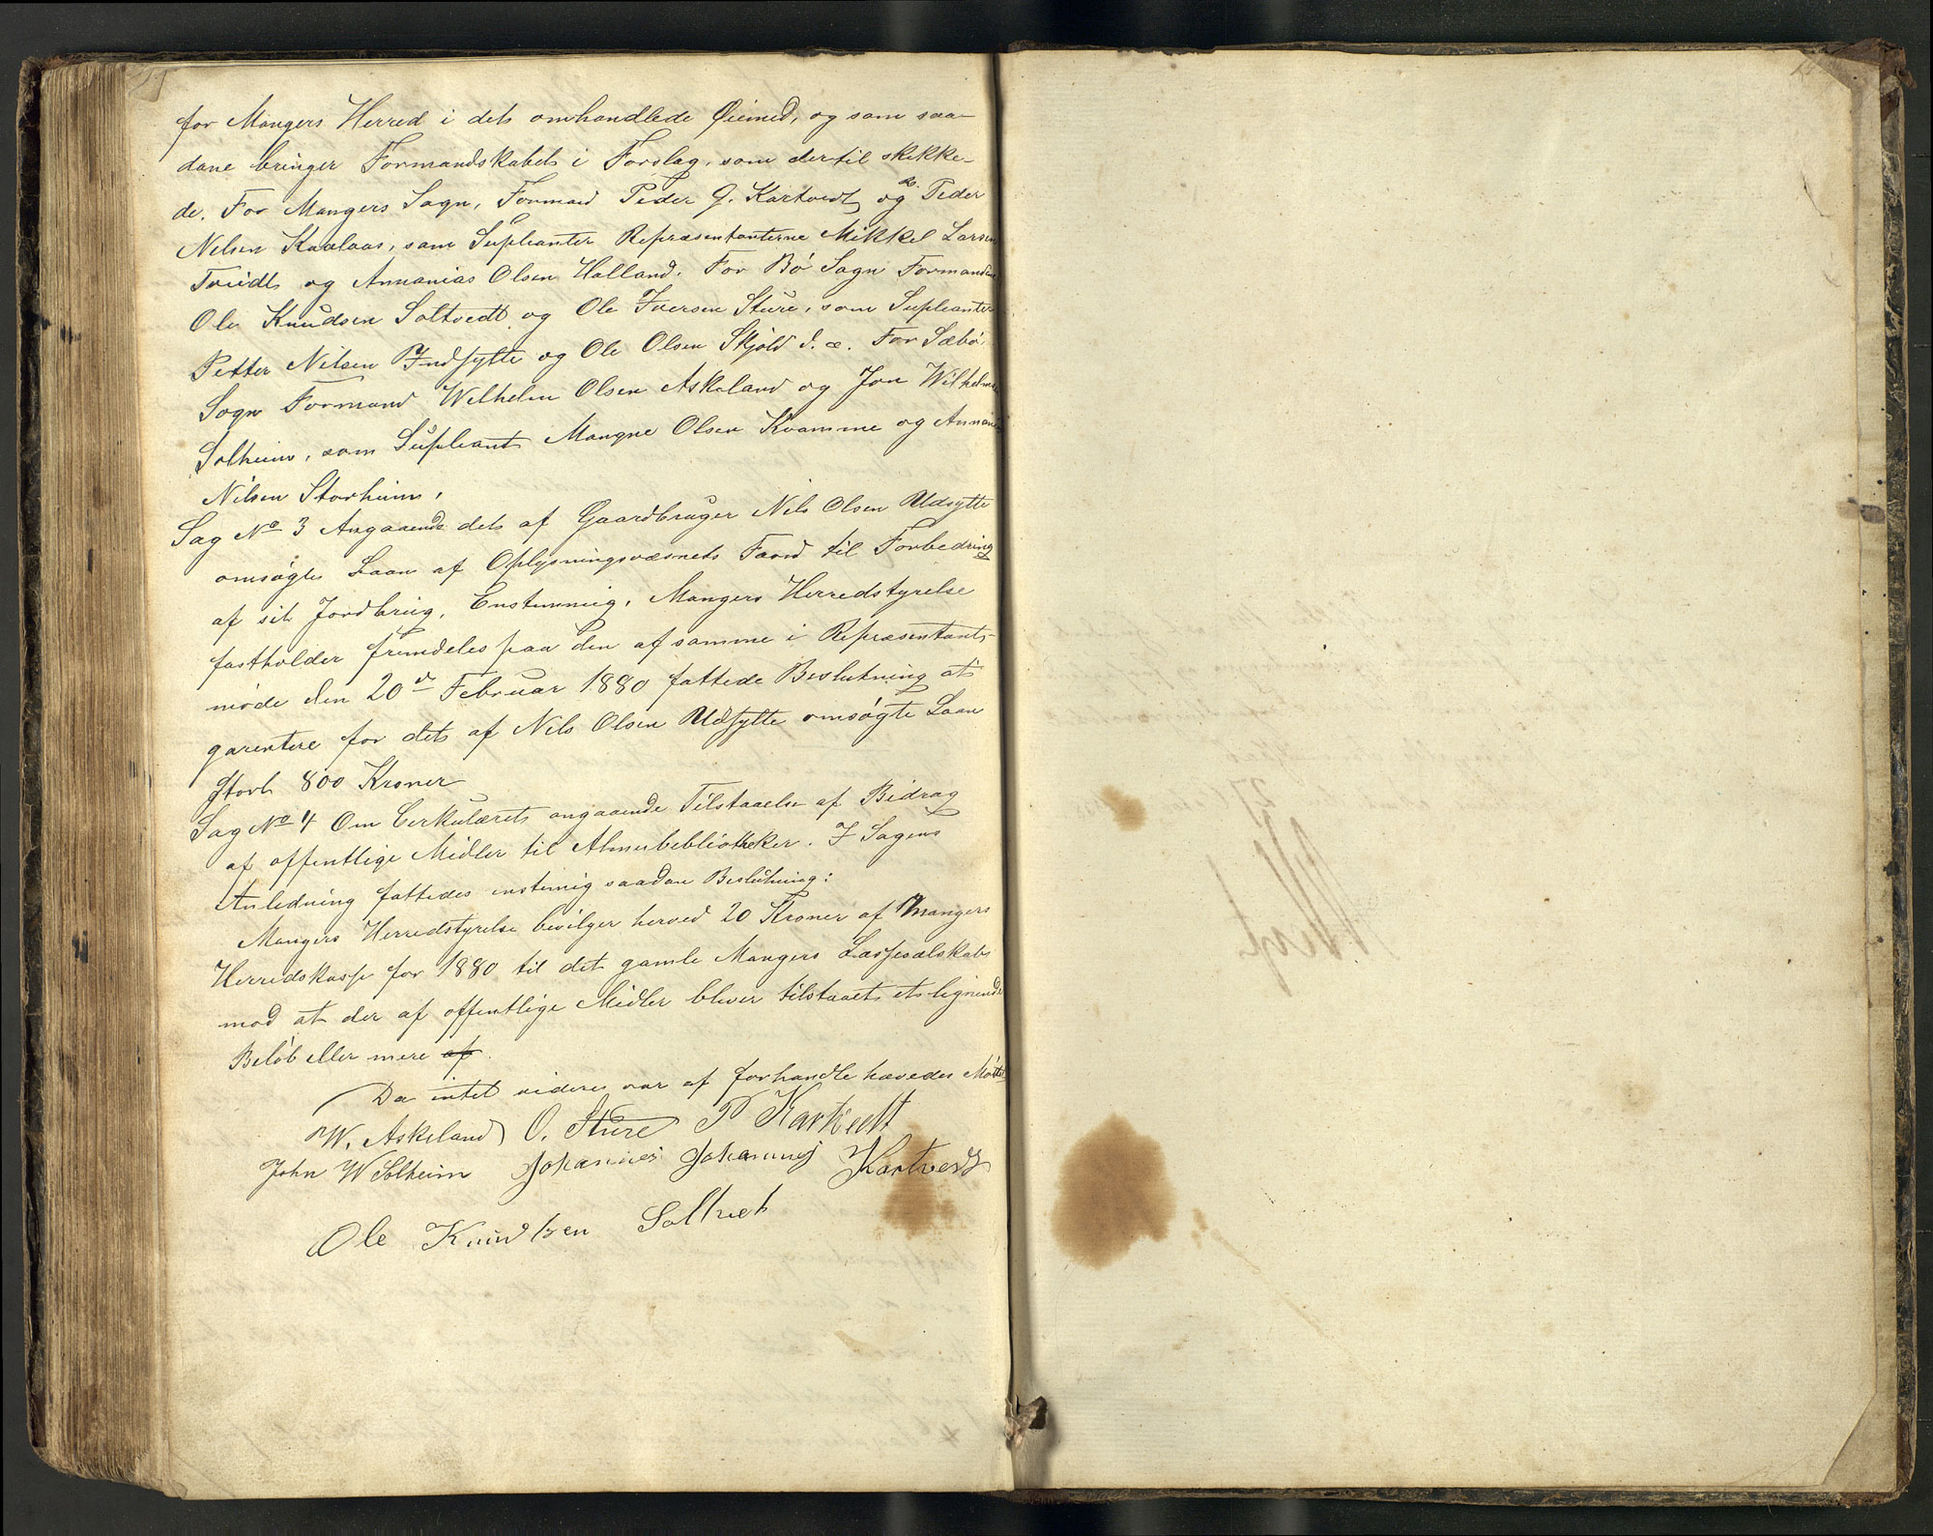 for Mangers Herred i dets omhandlede Øiemed, og som saa-
dane bringer Formandskabet i Forslag, som dertil skikke-
de. For Mangers Sogn, Formand Peder J. Kartvedt og R. Peder
Nilsen Kaalaas, som Supleanter Repræsentanterne Mikkel Larsen
Tveidt og Annanias Olsen Halland. For Bö Sogn Formanden
Ole Knudsen Soltvedt og Ole Iversen Sture, som Supleanter
Petter Nilsen Indsytte og Ole Olsen Skjöld d. æ. For Sæbö
Sogn Formand Welhelm Olsen Askeland og Jon Wilhelmsen
Solheim, som Supleant Mangne Olsen Kvamme og Annanias
Nilsen Storheim.
Sag No 3 Angaaende det af Gaardbruger Nils Olsen Udsytte
omsögte Laan af Oplysningsvæsnets Fond til Forbedring
af sit Jordbrug, Enstemmig, Mangers Herredstyrelse
fastholder fremdeles paa den af samme i Repræsentants-
möde den 20de Februar 1880 fattede Beslutning at
garentere for det af Nils Olsen Udsytte omsögte Laan
stort 800 Kroner
Sag No 4 Om Cirkulæret angaaende Tilstaaelse af Bidrag
af offentlige Midler til Almuebibliotheker. I Sagens
Anledning fattedes enstemig saadan Beslutning:
Mangers Herredstyrelse bevilger herved 20 Kroner af Mangers
Herredskasse for 1880 til det gamle Mangers Læseselskab
mod at der af offentlige Midler bliver tilstaaet et lignende
Belöb eller mere af.
Da intet videre var af forhandle hævedes Mödet
W. Askeland O. Sture P Kartvedt
John W Solheim Johannes Johannes Kartvedt
Ole Knudsen Soltvet